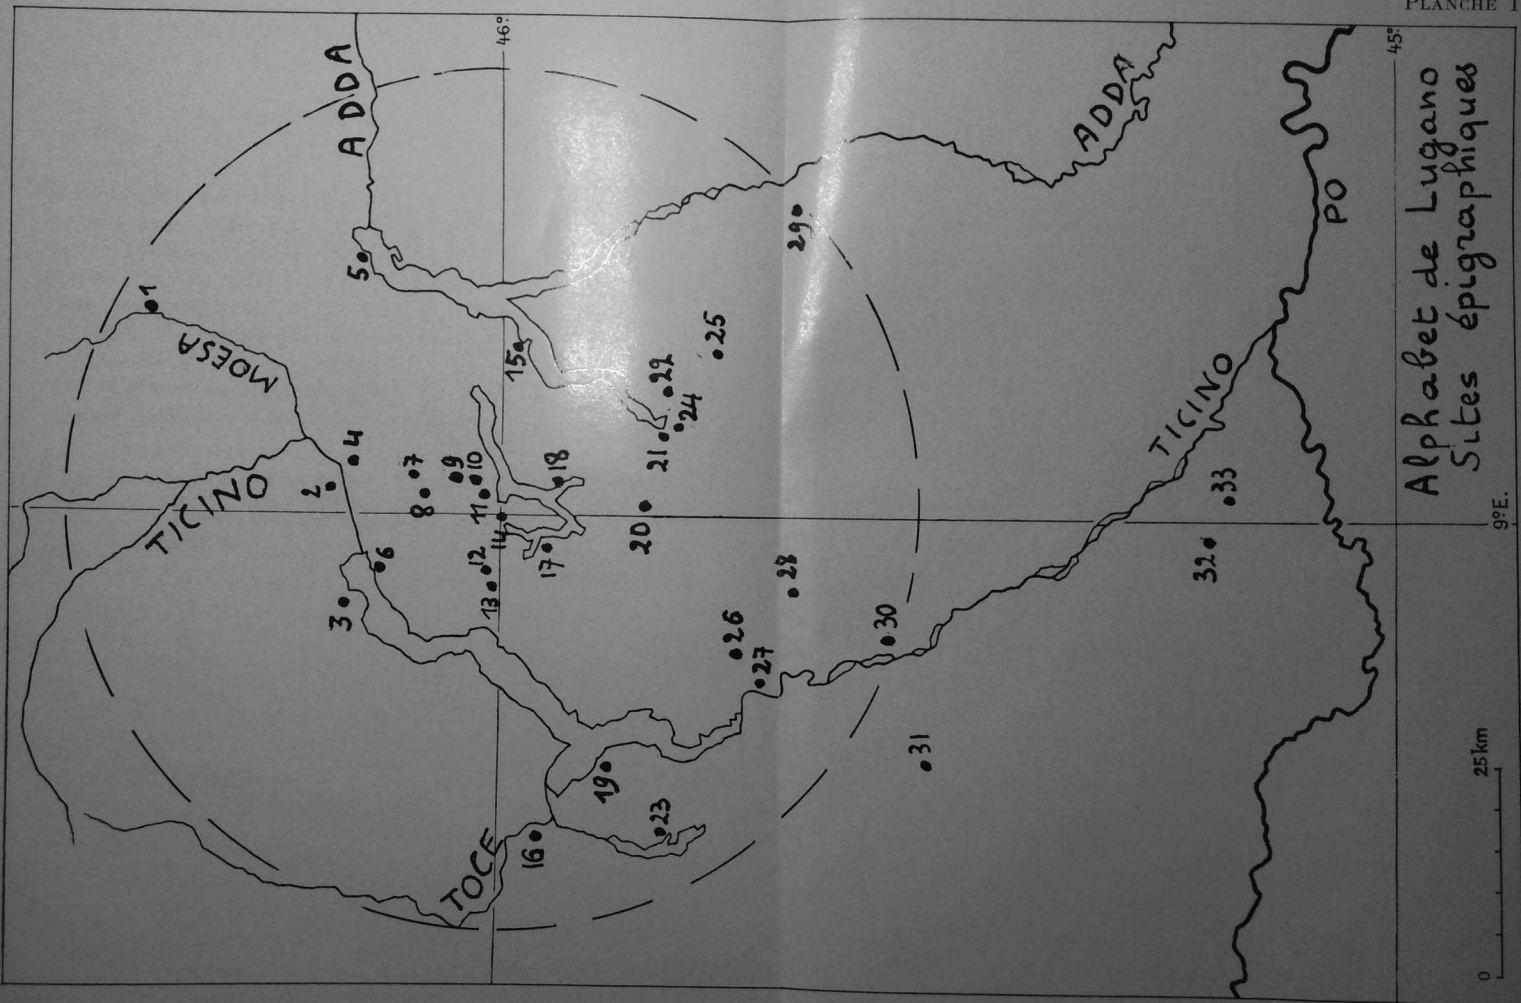 PLANCHE I
Alphabet de Lugano
Sites épigraphiques
46°
45°
9°E.
ADDA
ADDA
MOESA
TICINO
TICINO
TOCE
PO
1
2
3
4
5
6
7
8
9
10
11
12
13
14
15
16
17
18
19
20
21
22
23
24
25
26
27
28
29
30
31
32
33
0
25km